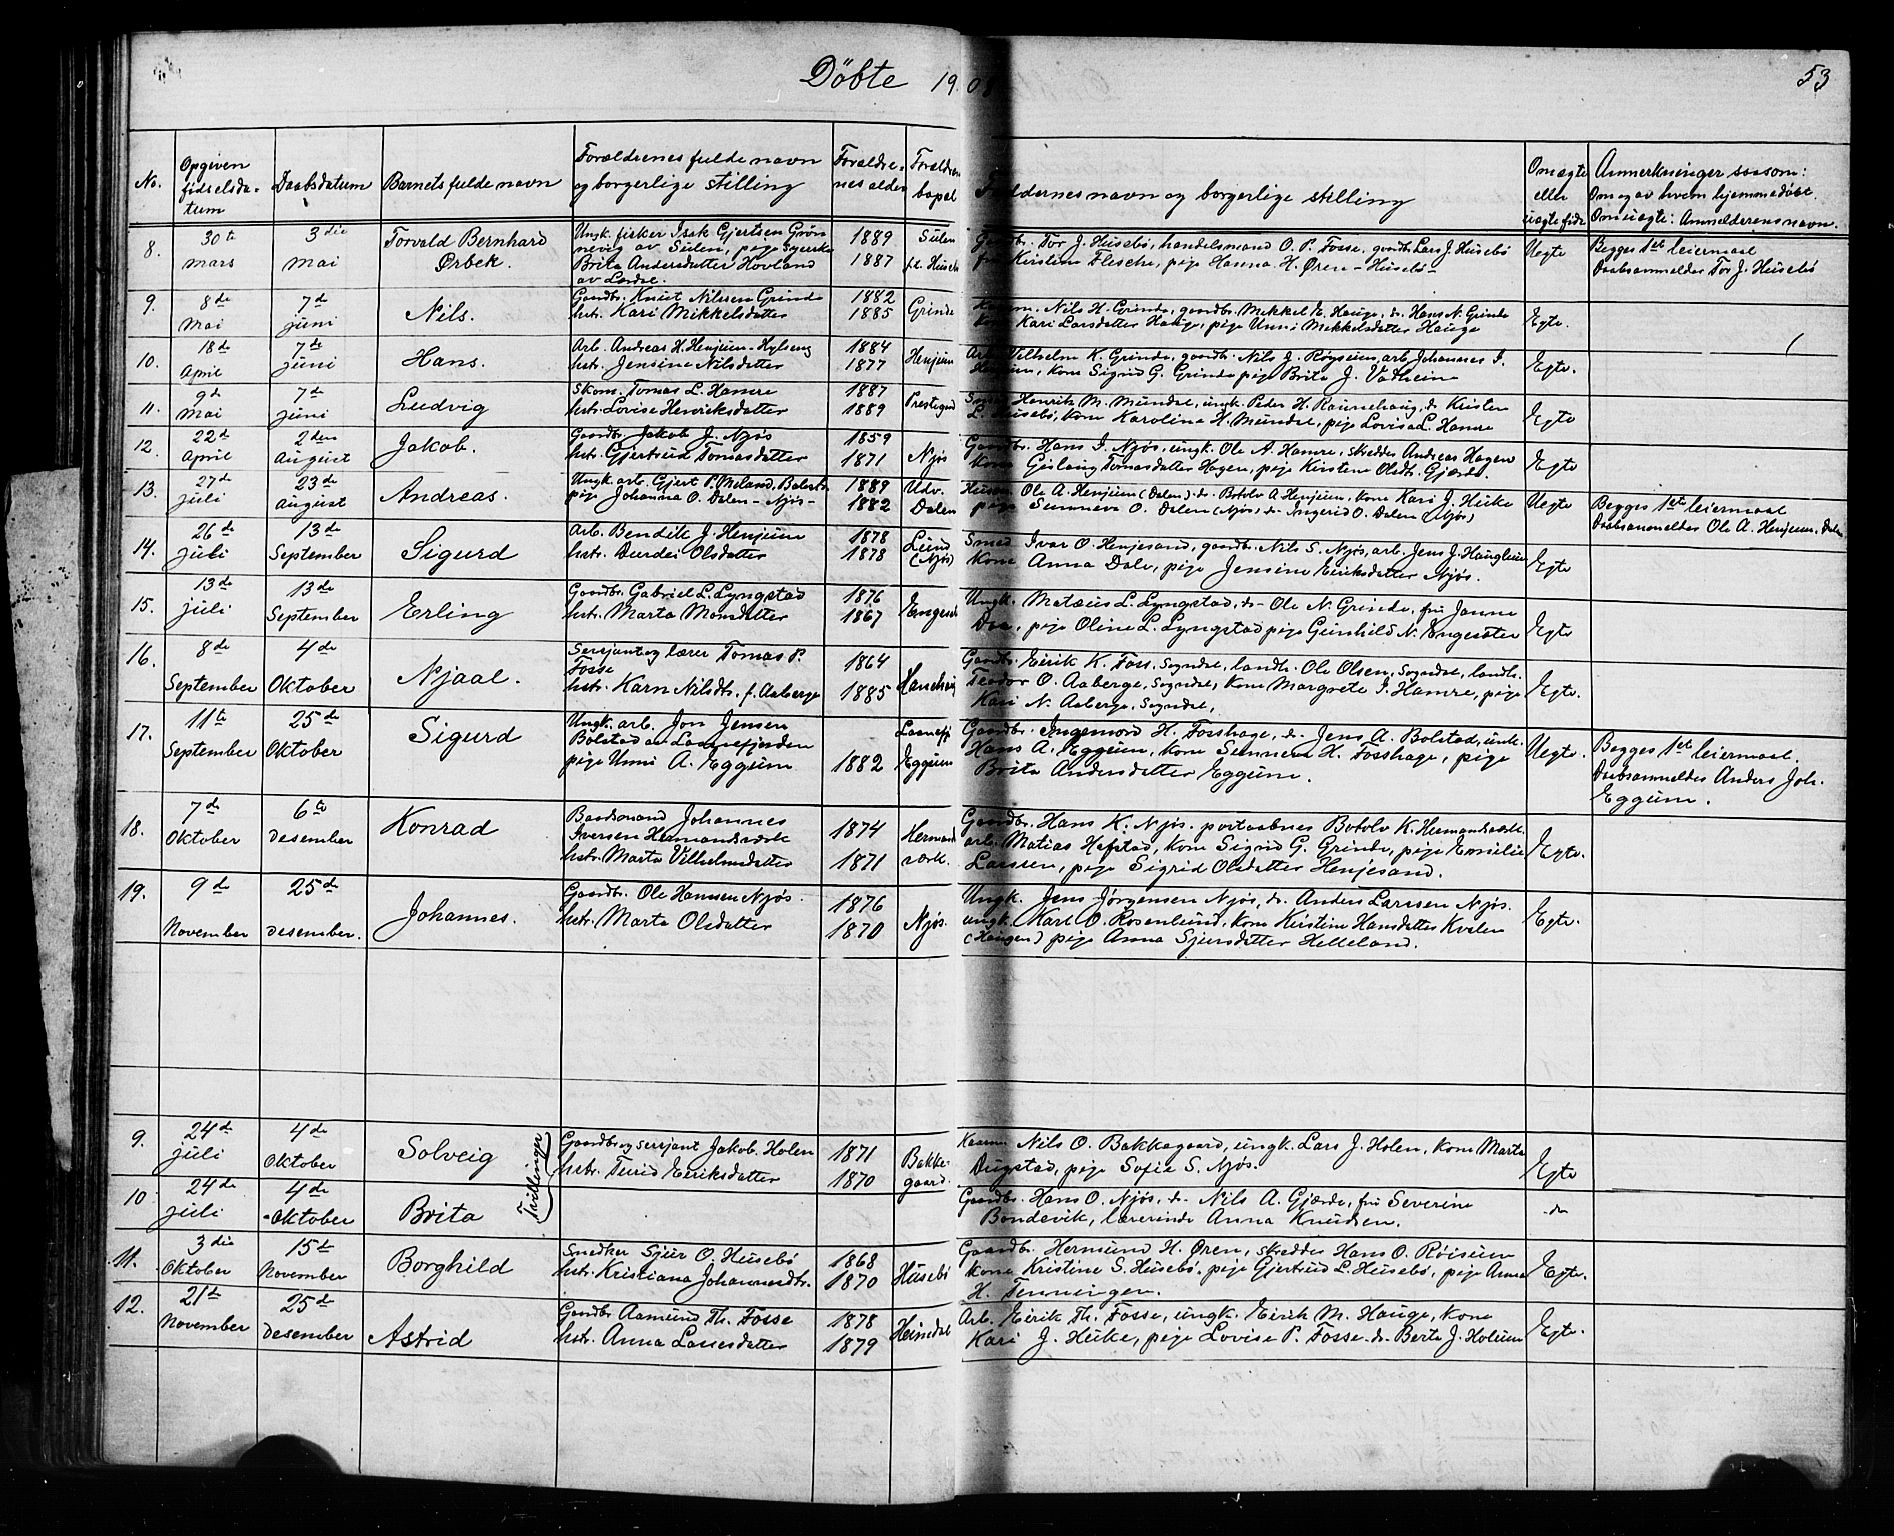 Döbte 1908
53
No.
Opgiven
fødselsda-
tum
Daabsdatum
Barnets fulde navn
Forældrenes fulde navn
og borgerlige stilling
Forældre-
nes alder
Forældrenes
bopæl
Faddernes navn og borgerlige stilling
Om egte
eller
uegte født
Anmerkninger saasom:
Om og av hvem hjemmedöbt.
Om uegte: Anmelderens navn.
8.
30te
mars
3die
mai
Torvald Bernhard
Ørbek.
Ungk. fisker Isak Gjertsen Grön-
nevig av Sulen, pige
Brita Andersdatter Hovland
av
1889
1887
Sulen
p.t. Husebö
Gaardbr. Tor J. Husebö, handelsmand O. P. Fosse, gaardbr. Lars J. Husebö
fru Kirstine Flesche, pige Hanna H. Øren - Husebö -
Uegte
Begges 1ste leiermaal
Daabsanmelder Tor J. Husebö
9.
8de
Mai
7de
juni
Nils.
Gaardbr. Knut Nilssen Grinde
hstr. Kari Mikkelsdatter
1882
1885
Grinde
Nils H. Grinde, gaardbr. Mikkel E. Hauge, do Hans N. Grinde
kone Kari Larsdatter Hauge, pige Unni Mikkelsdatter Hauge
Egte.
10.
18de
April
7de
juni
Hans.
Arb. Andreas H. Henjum - Hylseng
hstr. Jensine Nilsdatter
1884
1877
Henjum
Arb. Vilhelm K. Grinde, gaardbr. Nils J. Röysum, arb. Johannes I.
Henjum, kone Sigrid G. Grinde pige Brita J. Vatheim
Egte.
11.
9de
Mai
7de
juni
Ludvig
Skom. Tomas L. Hamre
hstr. Lovise Henriksdatter
1887
1889
Prestegrd
Henrik M. Mundal, ungk. Peder H. Raunehaug, do Kristen
L. Husebö, kone Karolina H. Mundal, pige Lovisa L. Hamre
Egte
12.
22de
April
2den
August
Jakob.
Gaardbr. Jakob J. Njös
hstr. Gjertrud Tomasdatter
1859
1871
Njös
Gaardbr. Hans I. Njös, ungk. Ole A. Hamre, skredder Andreas Hagen
kone Geslaug Tomasdatter Hagen, pige Kirstine Olsdtr. Gjærde.
Egte
13.
27de
juli
23de
August
Andreas.
Ungk. arb. Gjert P. Meland, Balestr.
pige Johanna O. Dalen - Njös -
1889
1882
Udv.
Dalen
Husm. Ole A. Henjum (Dalen) do Botolv A Henjum, kone Kari J. Huke
pige Sunneva O. Dalen (Njös), do Ingerid O. Dalen (Njös)
Uegte
Begges 1ste leiermaal
Daabsanmelder Ole A. Henjum, Dalen
14.
26de
juli
13de
September
Sigurd
Arb. Bendik J. Henjum
hstr. Durdei Olsdatter
1878
1878
Lund
(Njös)
Smed Ivar O. Henjesand, gaardbr. Nils S. Njös, arb. Jens J. Hauglum
kone Anna Dale, pige Jensine Eriksdatter Njös.
Egte
15.
13de
juli
13de
September
Erling
Gaardbr. Gabriel L. Lyngstad
hstr. Marta Monsdatter
1876
1867
Engesæt
Ungk. Matæus L. Lyngstad, do Ole N. Grinde, fru Janna
Daa, pige Oline L. Lyngstad pige Gunhild N. Engesæter
Egte
16.
8de
September
4de
Oktober
Njaal.
Sersjant og lærer Tomas P.
Fosse
hstr. Karn Nilsdtr. f. Aaberge
1864
1885
Hanehaug
Gaardbr. Eirik K. Foss, Sogndal, landh. Ole Olsen, Sogndal, landh.
Teodor O. Aaberge, Sogndal, kone Margrete I. Hamre, pige
Kari N. Aaberge, Sogndal,
Egte.
17.
11te
September
25de
Oktober
Sigurd
Ungk. arb. Jon Jensen
Bolstad av Lannefjorden
pige Unni A. Eggum
1882
Lannefj.
Eggum
Gaardbr. Ingemord H. Fosshage, do Jens A. Bolstad, ungk.
Hans A. Eggum, kone Sunneva H. Fosshage, pige
Brita Andersdatter Eggum.
Uegte.
Begges 1ste leiermaal.
Daabsanmelder Anders Joh.
Eggum.
18.
7de
Oktober
6te
Desember
Konrad
Baadsmand Johannes
Iversen Hermandsværk
hstr. Marta Vilhelmsdatter
1874
1871
Hermands
værk.
Gaardbr. Hans K. Njös. postaabner Botolv K. Hermandsværk.
arb. Matias Hafstad, kone Sigrid G. Grinde, pige Emilie
Larssen, pige Sigrid Olsdatter Henjesand.
Egte.
19.
9de
November
25de
Desember.
Johannes.
Gaardbr. Ole Hanssen Njös.
hstr. Marta Olsdatter
1876
1870
Njös.
Ungk. Jens Jörgensen Njös, do. Anders Larssen Njös.
ungk. Karl O. Rosenlund, kone Kirstine Hansdatter Kvalen
(Haugen) pige Anna Sjursdatter Helleland.
Egte.
9.
24de
juli
4de
Oktober
Solveig
Tvillinger
Gaardbr. og sersjant Jakob Holen
hstr. Turid Eeriksdatter
1871
1870
Bakke-
gaard.
Nils O. Bakkegaard, ungk. Lars J. Holen, kone Marta
Dugstad, pige Sofie S. Njös.
Egte
10.
24de
juli
4de
Oktober
Brita
Gaardbr. Hans O. Njös, do Nils A. Gjærde, fru Severine
Bondevik, lærerinde Anna Knudsen.
do
11.
3die
Oktober
15de
November
Borghild
Snedker Sjur O. Husebö
hstr. Kristiana Johannesdtr.
1868
1870
Husebö
Gaardbr. Hermund H. Øren, skredder Hans O. Röisum
kone Kristine S. Husebö, pige Gjertrud L. Husebö, pige Anna
H. Tenningen.
Egte.
12.
21de
November
25de
Desember
Astrid
Gaardbr. Aamund Th. Fosse
hstr. Anna Lassesdatter
1878
1879
Heimdal
Arb. Eirik Th. Fosse, ungk. Eirik M. Hauge, kone
Kari J. Huke, pige Lovise P. Fosse do Berta J. Holum
Egte.